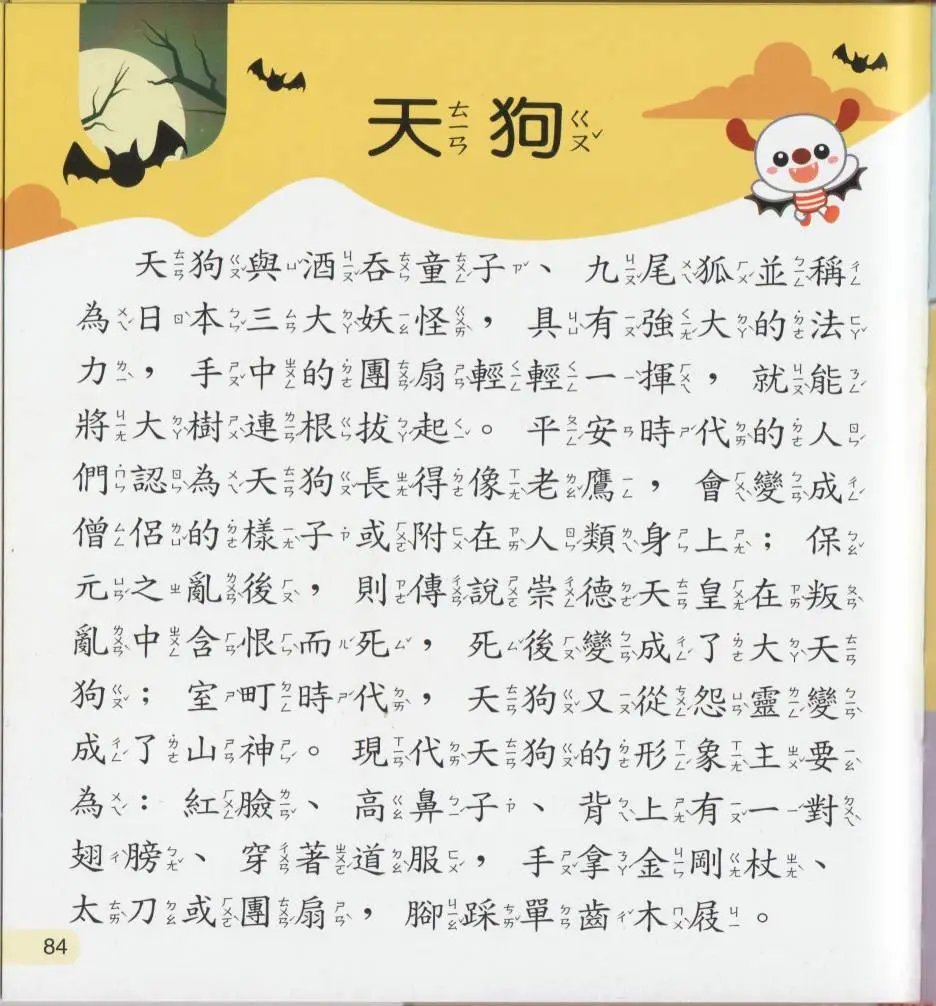 天狗
天狗與酒吞童子、九尾狐並稱
為日本三大妖怪，具有強大的法
力，手中的團扇輕輕一揮，就能
將大樹連根拔起。平安時代的人
們認為天狗長得像老鷹，會變成
僧侶的樣子或附在人類身上；保
元之亂後，則傳說崇德天皇在叛
亂中含恨而死，死後變成了大天
狗；室町時代，天狗又從怨靈變
成了山神。現代天狗的形象主要
為：紅臉、高鼻子、背上有一對
翅膀、穿著道服，手拿金剛杖、
太刀或團扇，腳踩單齒木屐。
84